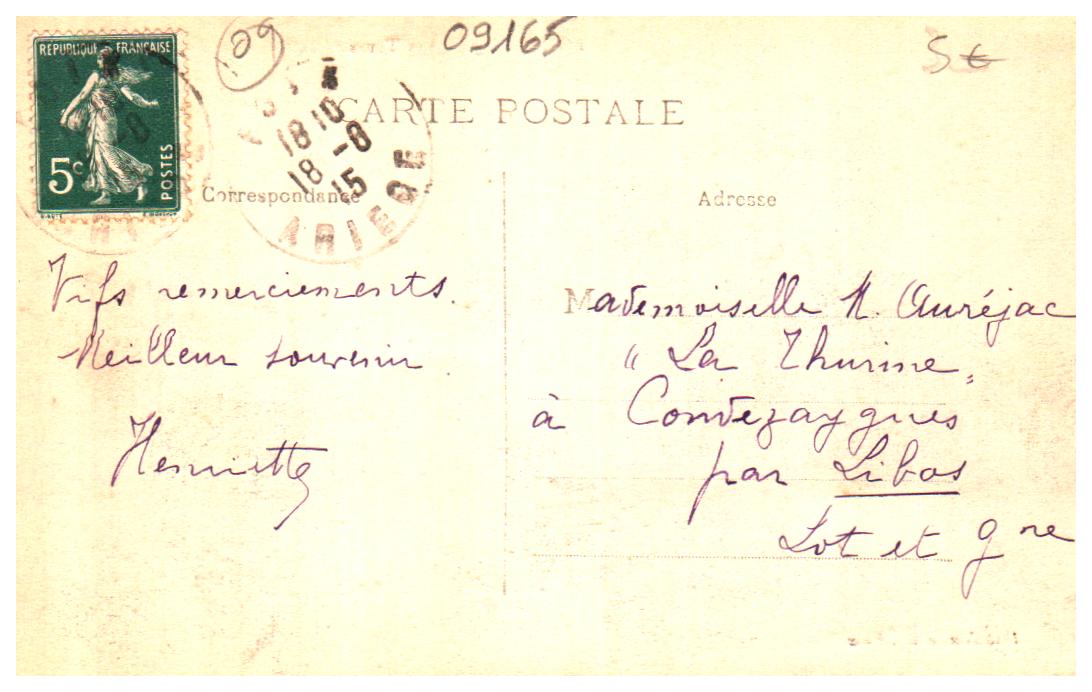 RÉPUBLIQUE FRANÇAISE
5c
POSTES
09
09165
5 €
CARTE POSTALE
18 10
18 -8
15
ARIEGE
Correspondance
Adresse
Vifs remerciements.
Meilleur souvenir.
Henriette
Mademoiselle M. Auréjac
"La Thurine"
à Condezaygues
par Libos
Lot et Gne